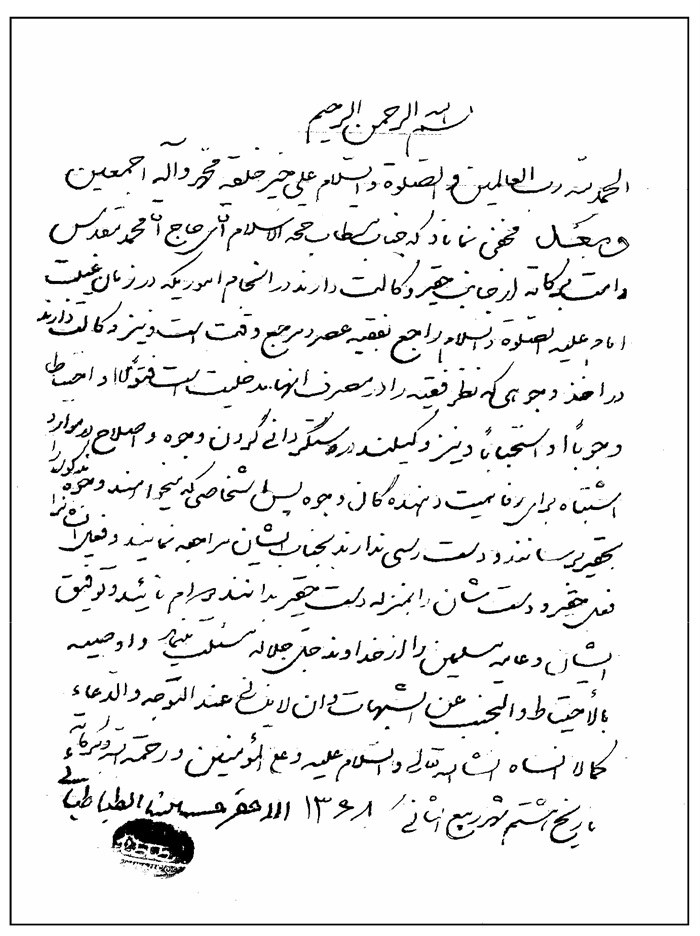 بسم الله الرحمن الرحیم
الحمد لله رب العالمین و الصلوة و السلام علی خیر خلقه محمد و آله اجمعین
و بعد مخفی نماناد که جناب مستطاب حجة الاسلام آقای حاج آقا محمد تقدس
دامت برکاته از جانب حقیر وکالت دارند در انجام اموریکه در زمان غیبت
امام علیه الصلوة و السلام راجع بفقیه عصر و مرجع وقت است و نیز وکالت دارند
در اخذ وجوهی که نظر فقیه را در مصرف آنها مدخلیت است فتوی او احتیاطا
وجوبا او استحبابا و نیز وکیلند در دستگردانی کردن وجوه و اصلاح موارد
اشتباه برای رفاهیت دهنده گان وجوه پس اشخاصی که میخواهند وجوه مذکوره را
بحقیر برسانند و دست رسی ندارند بجناب ایشان مراجعه نمایند و فعل ایشانرا
فعل حقیر و دست شان را بمنزله دست حقیر بدانند دوام تأیید و توفیق
ایشان و عامه مسلمین را از خداوند جل جلاله مسئلت مینمایم و اوصیه
بالأحتیاط و التجنب عن الشبهات و ان لا ینسانی عند التوجه و الدعاء
کما لا انساه انشاء الله تعالی و السلام علیه و علی المؤمنین و رحمة الله و برکاته
بتاریخ هشتم شهر ربیع الثانی ۱۳۶۸ الاحقر حسین الطباطبائی